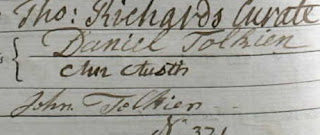 Tho: Richards Curate
Daniel Tolkien
Ann Austin
John Tolkien
No 371